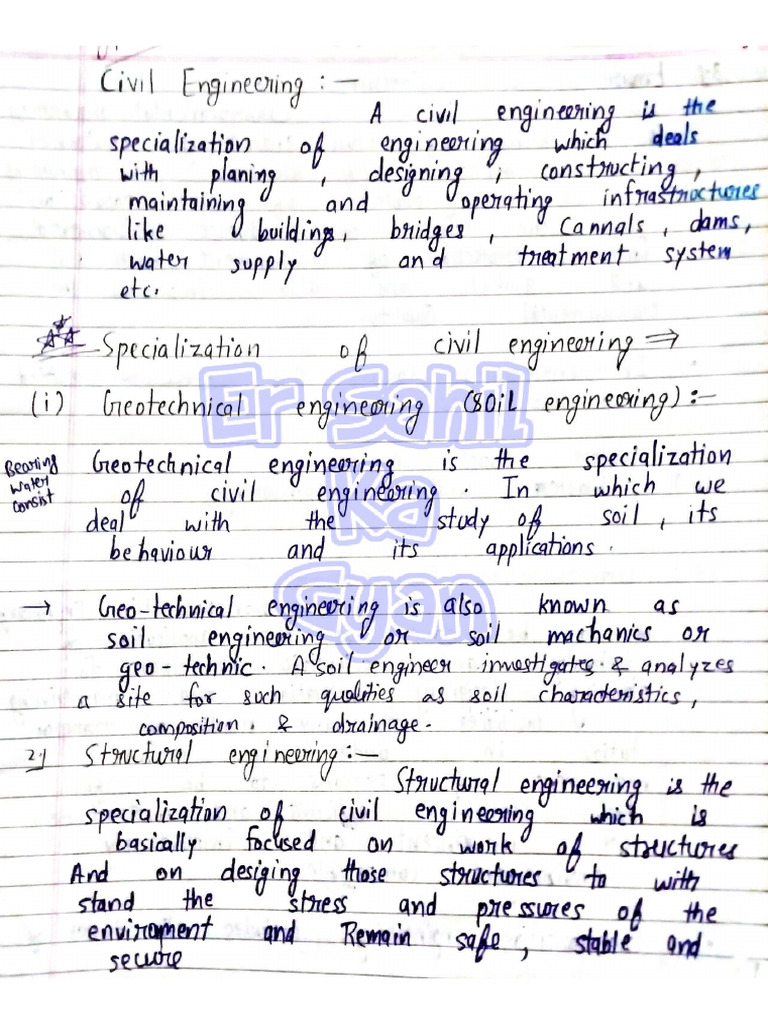 Civil Engineering :-
A civil engineering is the
specialization of engineering which deals
with planing , designing , constructing ,
maintaining and operating infrastructures
like buildings, bridges , Cannals , dams,
water supply and treatment system
etc.
Specialization of civil engineering ⇒
(i) Geotechnical engineering (SOiL engineering) :-
Bearing
Water
Consist
Geotechnical engineering is the specialization
of civil engineering . In which we
deal with the study of soil , its
behaviour and its applications .
→ Geo-technical engineering is also known as
soil engineering or soil machanics or
geo - technic . A soil engineer investigates & analyzes
a site for such qualities as soil characteristics ,
composition . & drainage .
2.) Structural engineering :-
Structural engineering is the
specialization of civil engineering which is
basically focused on work of structures
And on desiging those structures to with
stand the stress and pressures of the
enviroment and Remain safe , stable and
secure
Er Sahil
Ka
Gyan